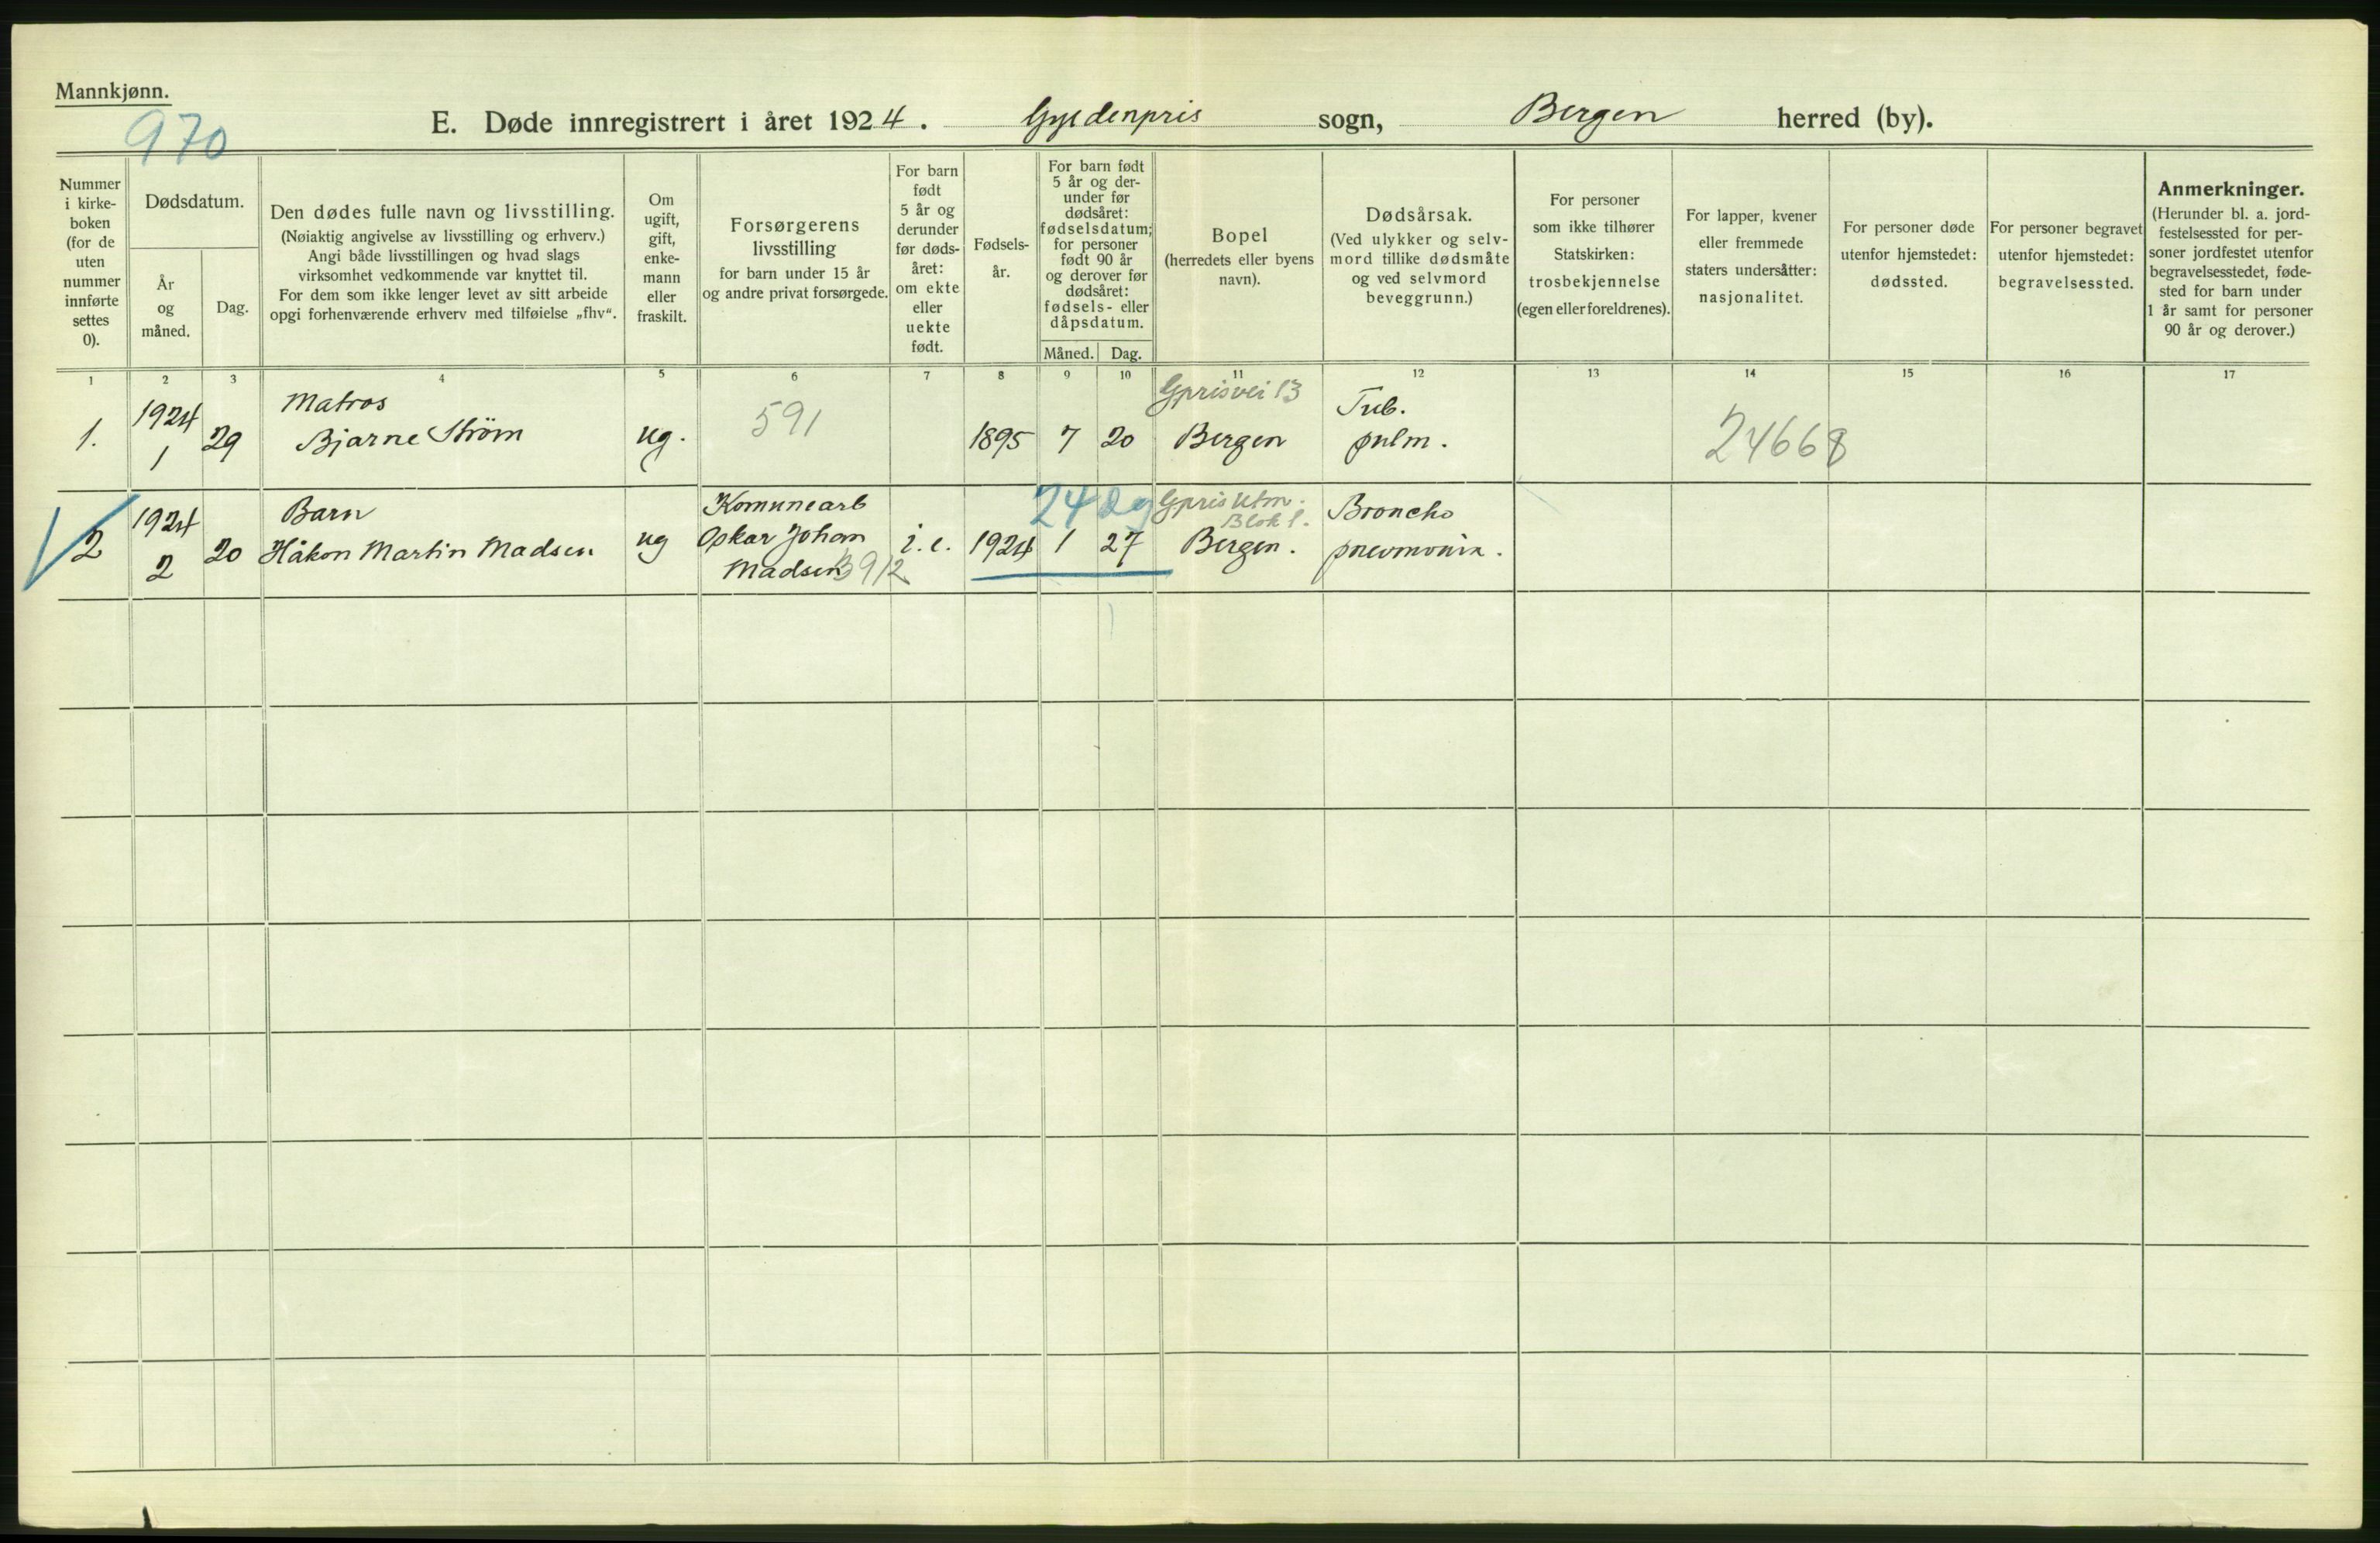 Mannkjønn.
970
E. Døde innregistrert i året 1924. Gyldenpris sogn, Bergen herred (by).
Nummer i kirke- boken (for de uten nummer innførte settes 0).
Dødsdatum.
År og måned.
Dag.
Den dødes fulle navn og livsstilling.
(Nøiaktig angivelse av livsstilling og erhverv.)
Angi både livsstillingen og hvad slags
virksomhet vedkommende var knyttet til.
For dem som ikke lenger levet av sitt arbeide
opgi forhenværende erhverv med tilføielse „fhv“.
Om ugift, gift, enke- mann eller fraskilt.
Forsørgerens
livsstilling
for barn under 15 år
og andre privat forsørgede.
For barn født 5 år og derunder før døds- året: om ekte eller uekte født.
Fødsels- år.
For barn født 5 år og der- under før dødsåret: fødselsdatum; for personer født 90 år og derover før dødsåret: fødsels- eller dåpsdatum.
Måned. Dag.
Bopel
(herredets eller byens
navn).
Dødsårsak.
(Ved ulykker og selv-
mord tillike dødsmåte
og ved selvmord
beveggrunn.)
For personer
som ikke tilhører
Statskirken:
trosbekjennelse
(egen eller foreldrenes).
For lapper, kvener
eller fremmede
staters undersåtter:
nasjonalitet.
For personer døde
utenfor hjemstedet:
dødssted.
For personer begravet
utenfor hjemstedet:
begravelsessted.
Anmerkninger.
(Herunder bl. a. jord-
festelsessted for per-
soner jordfestet utenfor
begravelsesstedet, føde-
sted for barn under
1 år samt for personer
90 år og derover.)
1 2 3 4 5 6 7 8 9 10 11 12 13 14 15 16 17
1924 Matros Gprisvei 13 Tub.
1. 1 29 Bjarne Strøm ug. 591 1895 7 20 Bergen pulm. 24668
1924 Barn Komunearb 24 Dg Gpris Broncho
Blok 1.
2 2 20 Håkon Martin Madsen ug Oskar Johan i.e. 1924 1 27 Bergen. pneumonia.
Madsen 3912